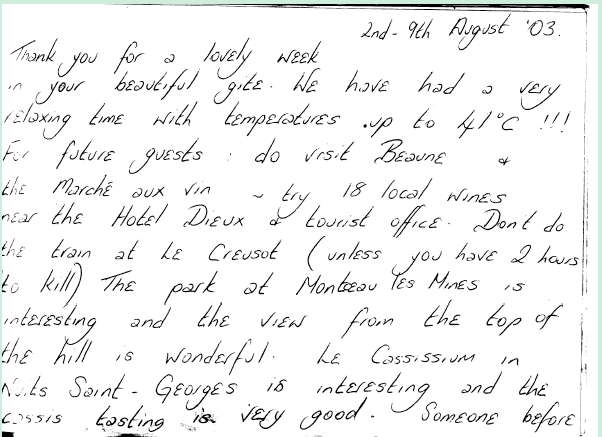 2nd - 9th August '03.
Thank you for a lovely week
in your beautiful gite. We have had a very
relaxing time with temperatures .up to 41°C !!!
For future guests : do visit Beaune &
the Marché aux vin ~ try 18 local wines
near the Hotel Dieux & tourist office. Dont do
the train at Le Creusot (unless you have 2 hours
to kill) The park at Montceau les Mines is
interesting and the view from the top of
the hill is wonderful. Le Cassissium in
Nuits Saint - Georges is interesting and the
cassis tasting is very good. Someone before